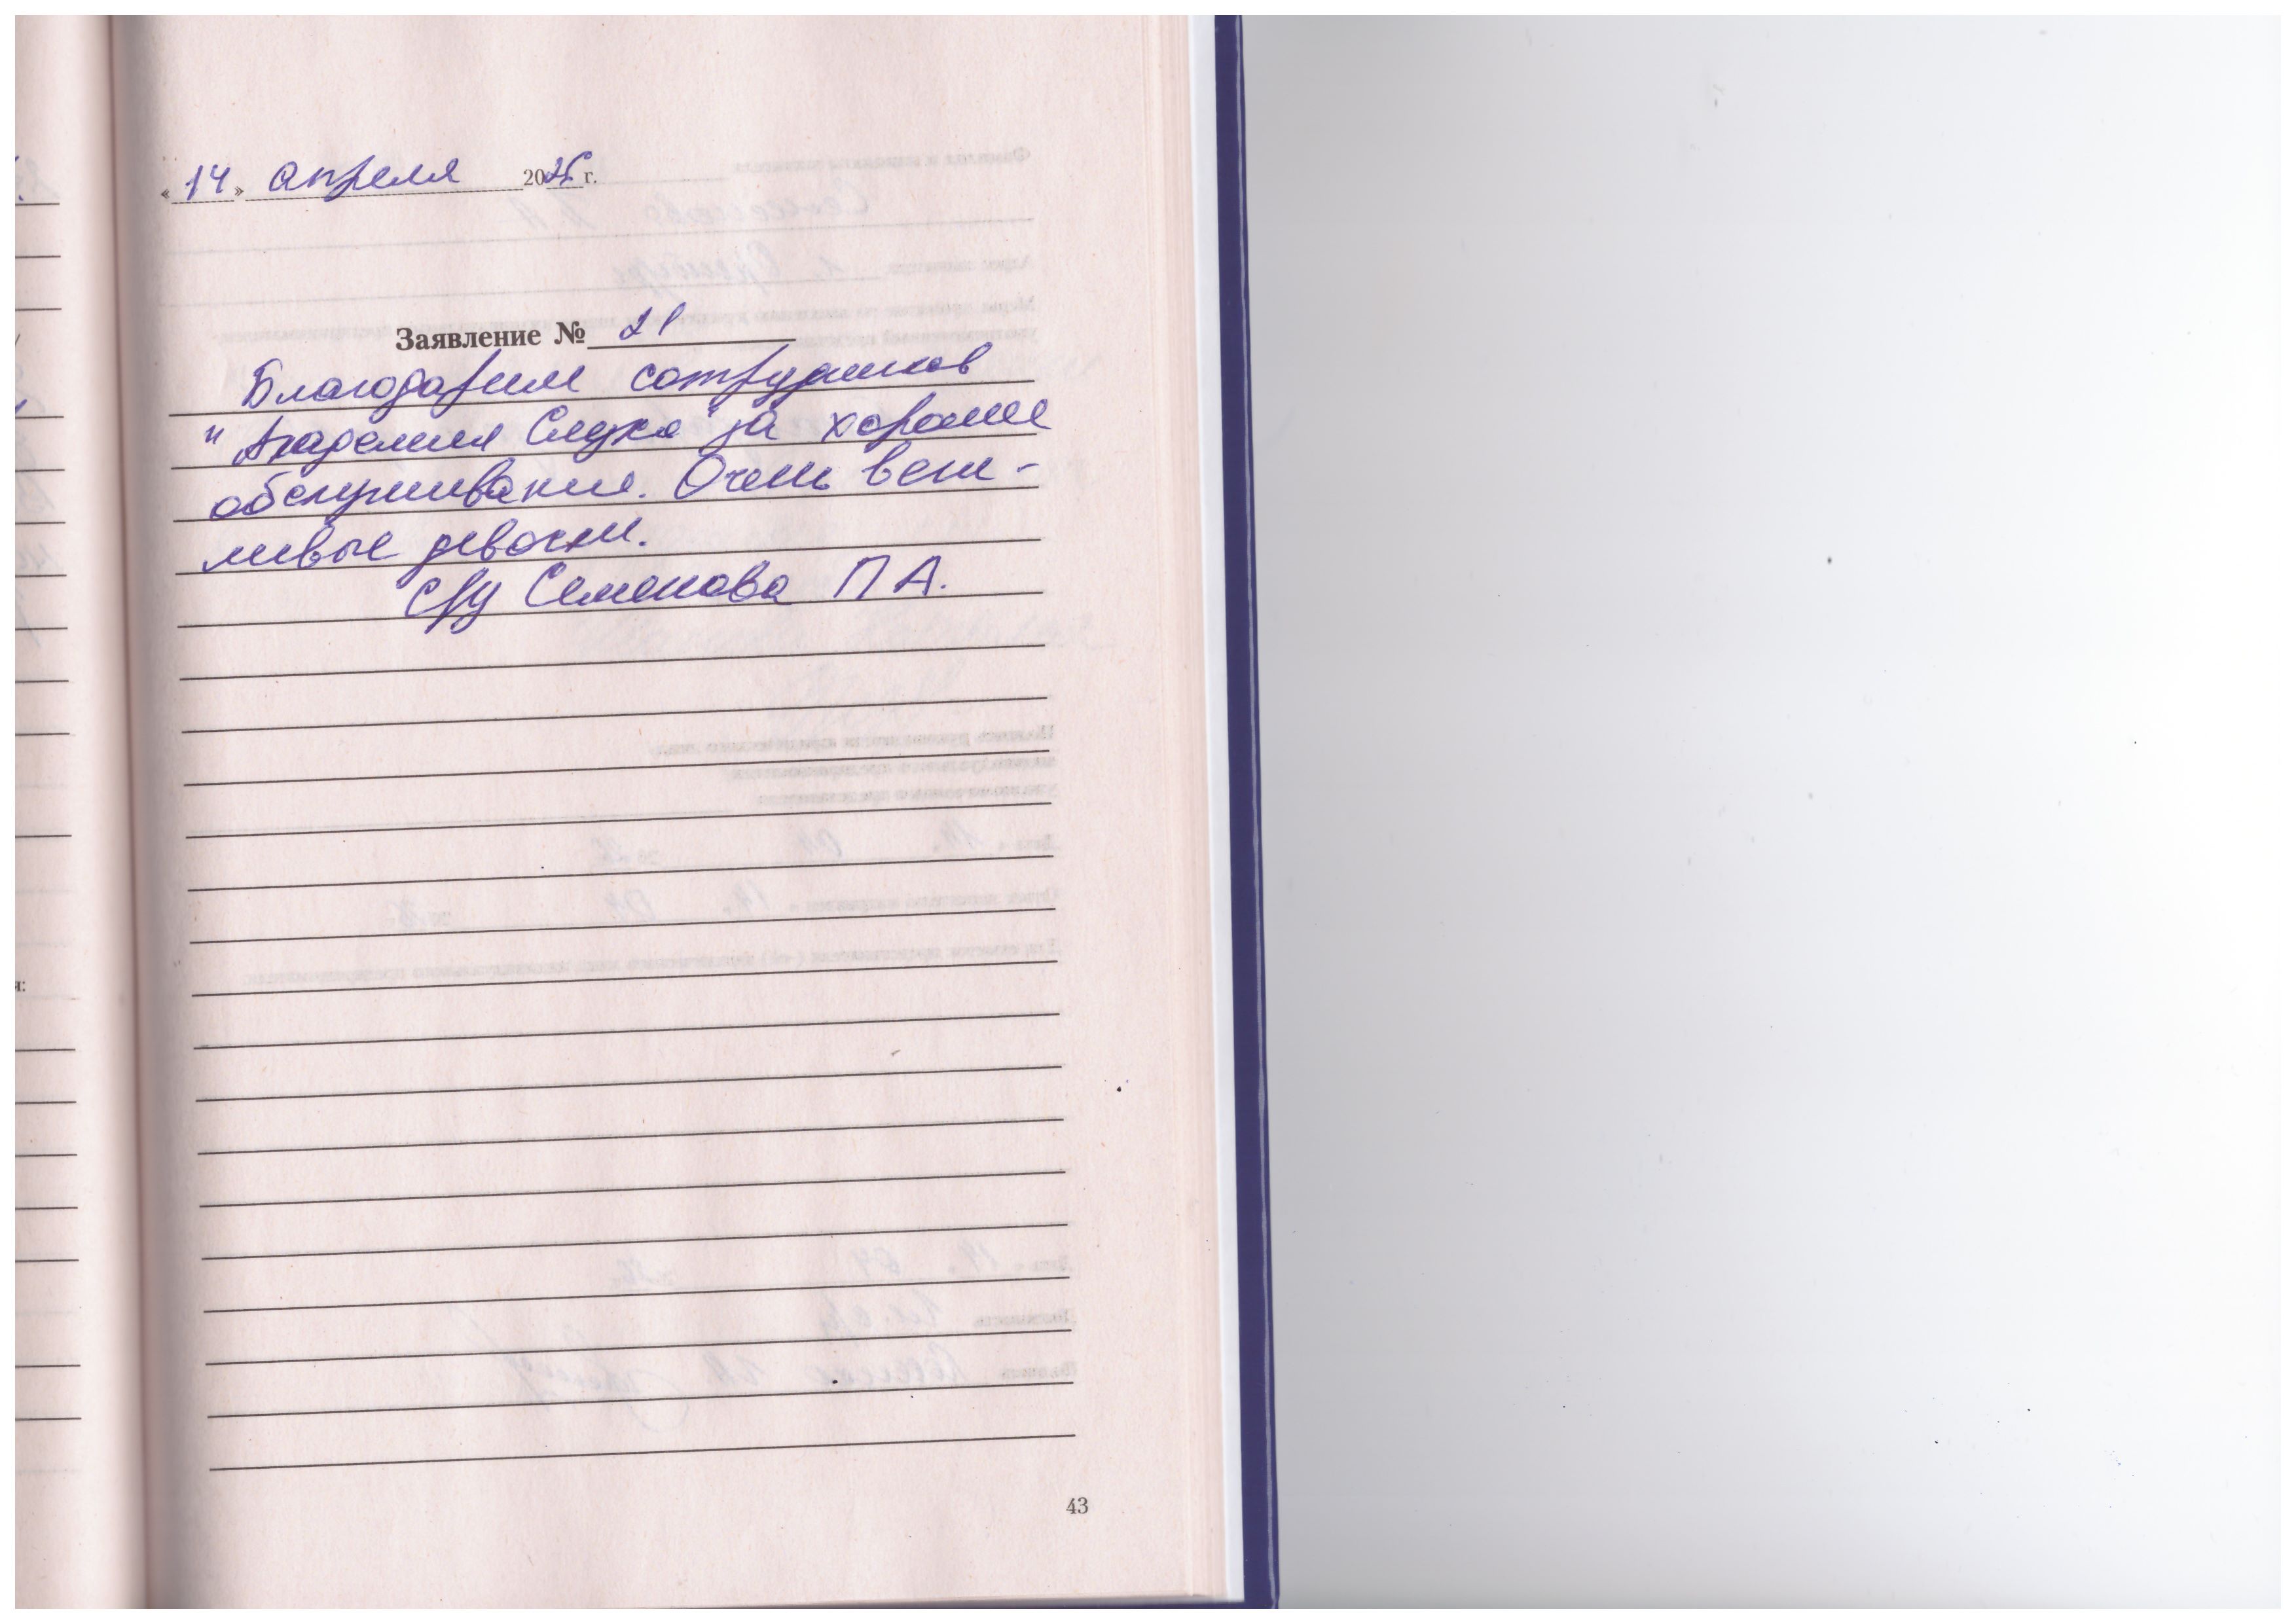 «14» апреля 2026 г.
Заявление № 21
Благодарим сотрудников
"Академия Слуха" за хорошее
обслуживание. Очень веж-
ливые девочки.
с/у Семенова П А.
43